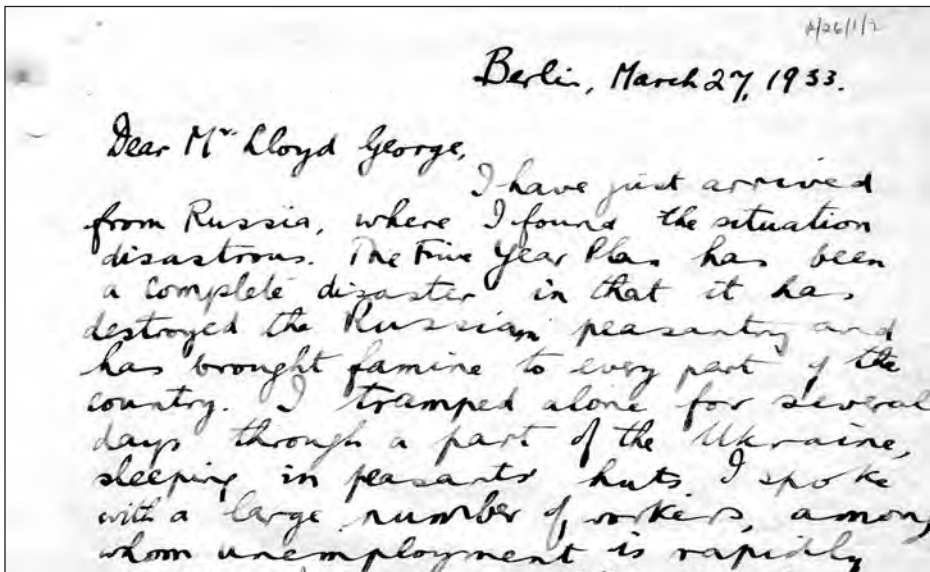 A/26/1/2
Berlin, March 27, 1933.
Dear Mr Lloyd George,
I have just arrived
from Russia, where I found the situation
disastrous. The Five Year Plan has been
a complete disaster in that it has
destroyed the Russian peasantry and
has brought famine to every part of the
country. I tramped alone for several
days through a part of the Ukraine,
sleeping in peasants' huts. I spoke
with a large number of workers, among
whom unemployment is rapidly